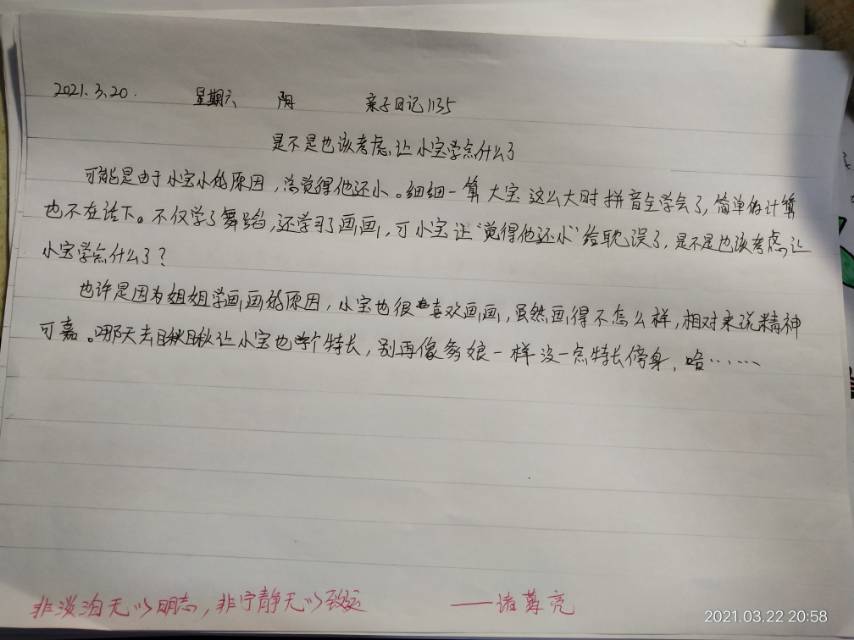 2021.3.20. 星期六 阴 亲子日记1135
是不是也该考虑让小宝学点什么了
可能是由于小宝小的原因，总觉得他还小。细细一算 大宝 这么大时拼音全学会了，简单的计算
也不在话下。不仅学了舞蹈，还学习了画画，可小宝让“觉得他还小”给耽误了，是不是也该考虑让
小宝学点什么了？
也许是因为姐姐学画画的原因，小宝也很喜欢画画，虽然画得不怎么样，相对来说精神
可嘉。哪天去瞅瞅让小宝也学个特长，别再像爹娘一样没一点特长傍身，哈……
非淡泊无以明志，非宁静无以致远 ——诸葛亮
2021.03.22 20:58